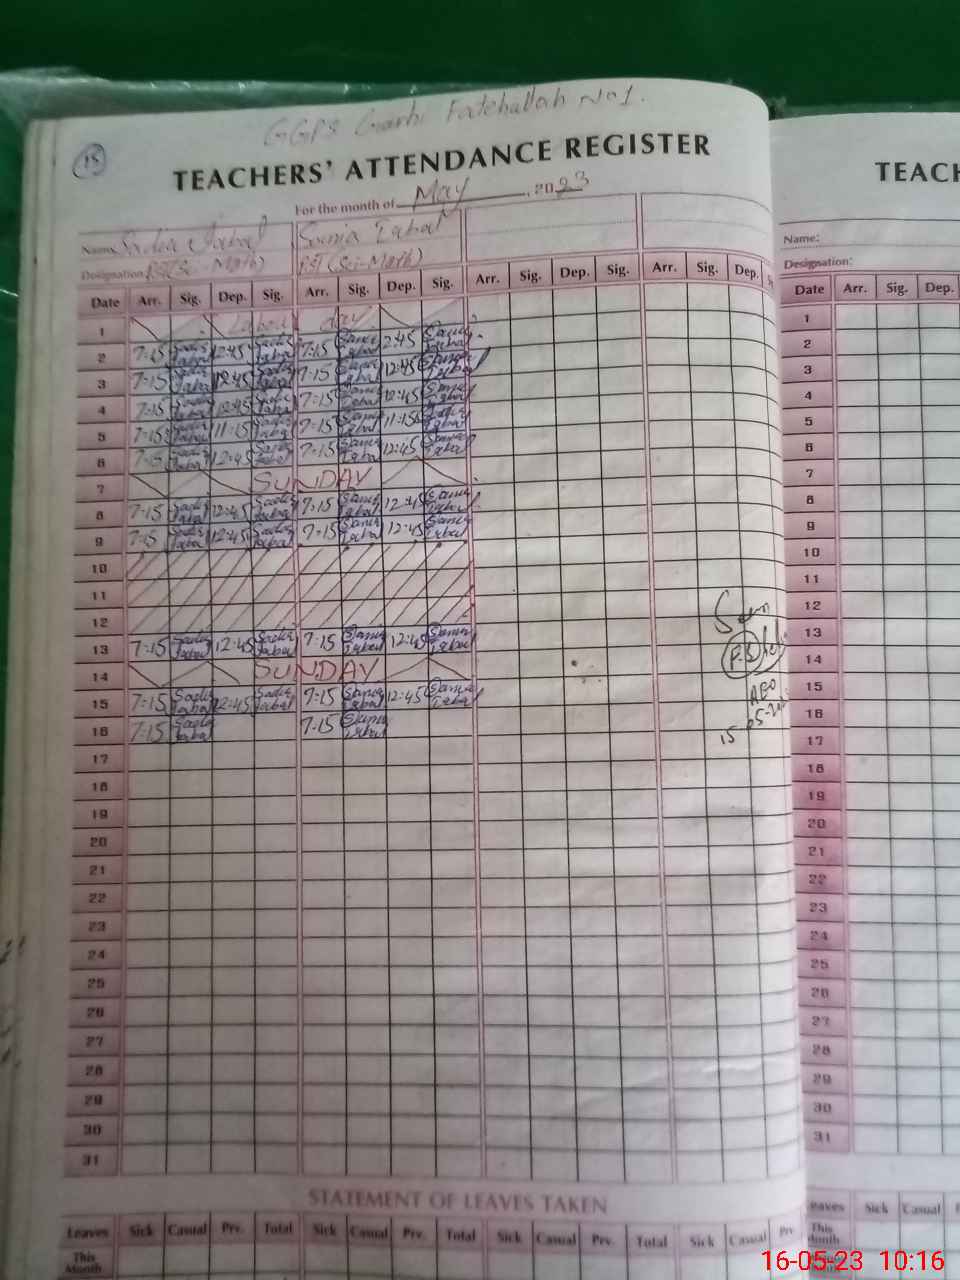 GGPS Garhi Fatehullah No 1.
15
TEACHERS' ATTENDANCE REGISTER
TEACH
For the month of May, 2023
Name Sadia Iqbal Sania Iqbal
Name:
Designation PST(Sci-Math) PST(Sci-Math)
Designation:
Date Arr. Sig. Dep. Sig. Arr. Sig. Dep. Sig. Arr. Sig. Dep. Sig. Arr. Sig. Dep.
Date Arr. Sig. Dep.
1 Labour day
2 7:15 Sadia Iqbal 12:45 Sadia Iqbal 7:15 Sania Iqbal 2:45 Sania Iqbal
3 7:15 Sadia Iqbal 12:45 Sadia Iqbal 7:15 Sania Iqbal 12:45 Sania Iqbal
4 7:15 Sadia Iqbal 12:45 Sadia Iqbal 7:15 Sania Iqbal 12:45 Sania Iqbal
5 7:15 Sadia Iqbal 11:15 Sadia Iqbal 7:15 Sania Iqbal 11:15 Sania Iqbal
6 7:15 Sadia Iqbal 12:45 Sadia Iqbal 7:15 Sania Iqbal 12:45 Sania Iqbal
7 SUNDAY
8 7:15 Sadia Iqbal 12:45 Sadia Iqbal 7:15 Sania Iqbal 12:45 Sania Iqbal
9 7:15 Sadia Iqbal 12:45 Sadia Iqbal 7:15 Sania Iqbal 12:45 Sania Iqbal
10
11
12
13 7:15 Sadia Iqbal 12:45 Sadia Iqbal 7:15 Sania Iqbal 12:45 Sania Iqbal
14 SUNDAY
15 7:15 Sadia Iqbal 12:45 Sadia Iqbal 7:15 Sania Iqbal 12:45 Sania Iqbal
16 7:15 Sadia Iqbal 7:15 Sania Iqbal
17
18
19
20
21
22
23
24
25
26
27
28
29
30
31
Seen
AEO
15-05-20
1
2
3
4
5
6
7
8
9
10
11
12
13
14
15
16
17
18
19
20
21
22
23
24
25
26
27
28
29
30
31
STATEMENT OF LEAVES TAKEN
Leaves Sick Casual Prv. Total Sick Casual Prv. Total Sick Casual Prv. Total Sick Casual Prv.
This Month
Leaves Sick Casual
This Month
16-05-23 10:16